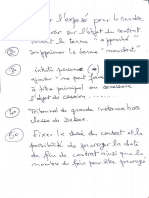 l'exposé pour le rendre
sur l'objet du contrat
le terme "apprenté"
supprimer le terme "mandaté"
intitulé
ajouter "ne peut faire
à titre principal ou accessoire
l'objet de cession ......
4°) Tribunal de grande instance hors
classe de Dakar.
5°) Fixer le délai du contrat et la
possibilité de proroger la date
de fin de contrat ainsi que le
nombre de fois pour être prorogé